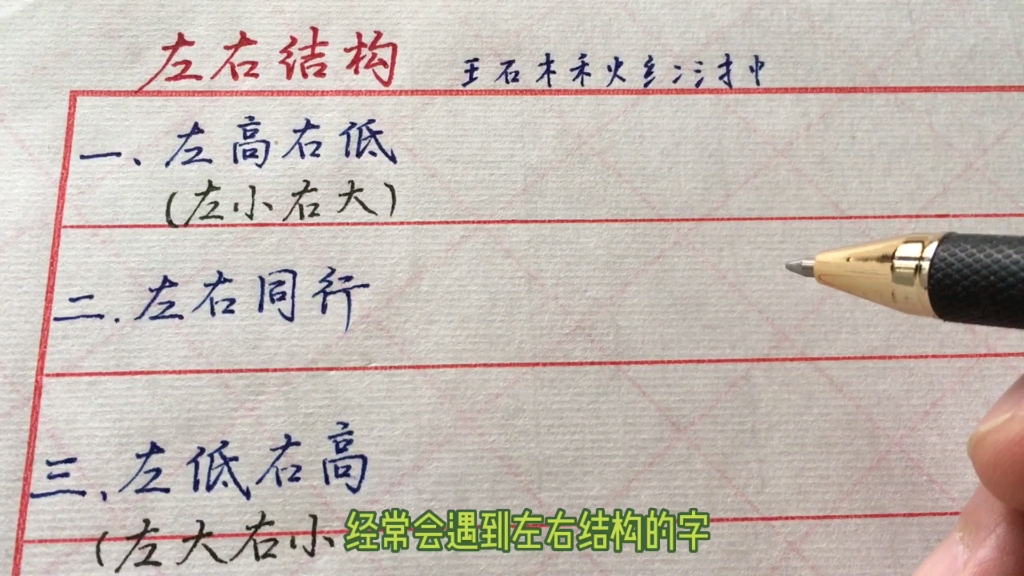 左右结构 王石木禾火纟冫氵扌巾
一、左高右低
(左小右大)
二.左右同行
三、左低右高
(左大右小
经常会遇到左右结构的字